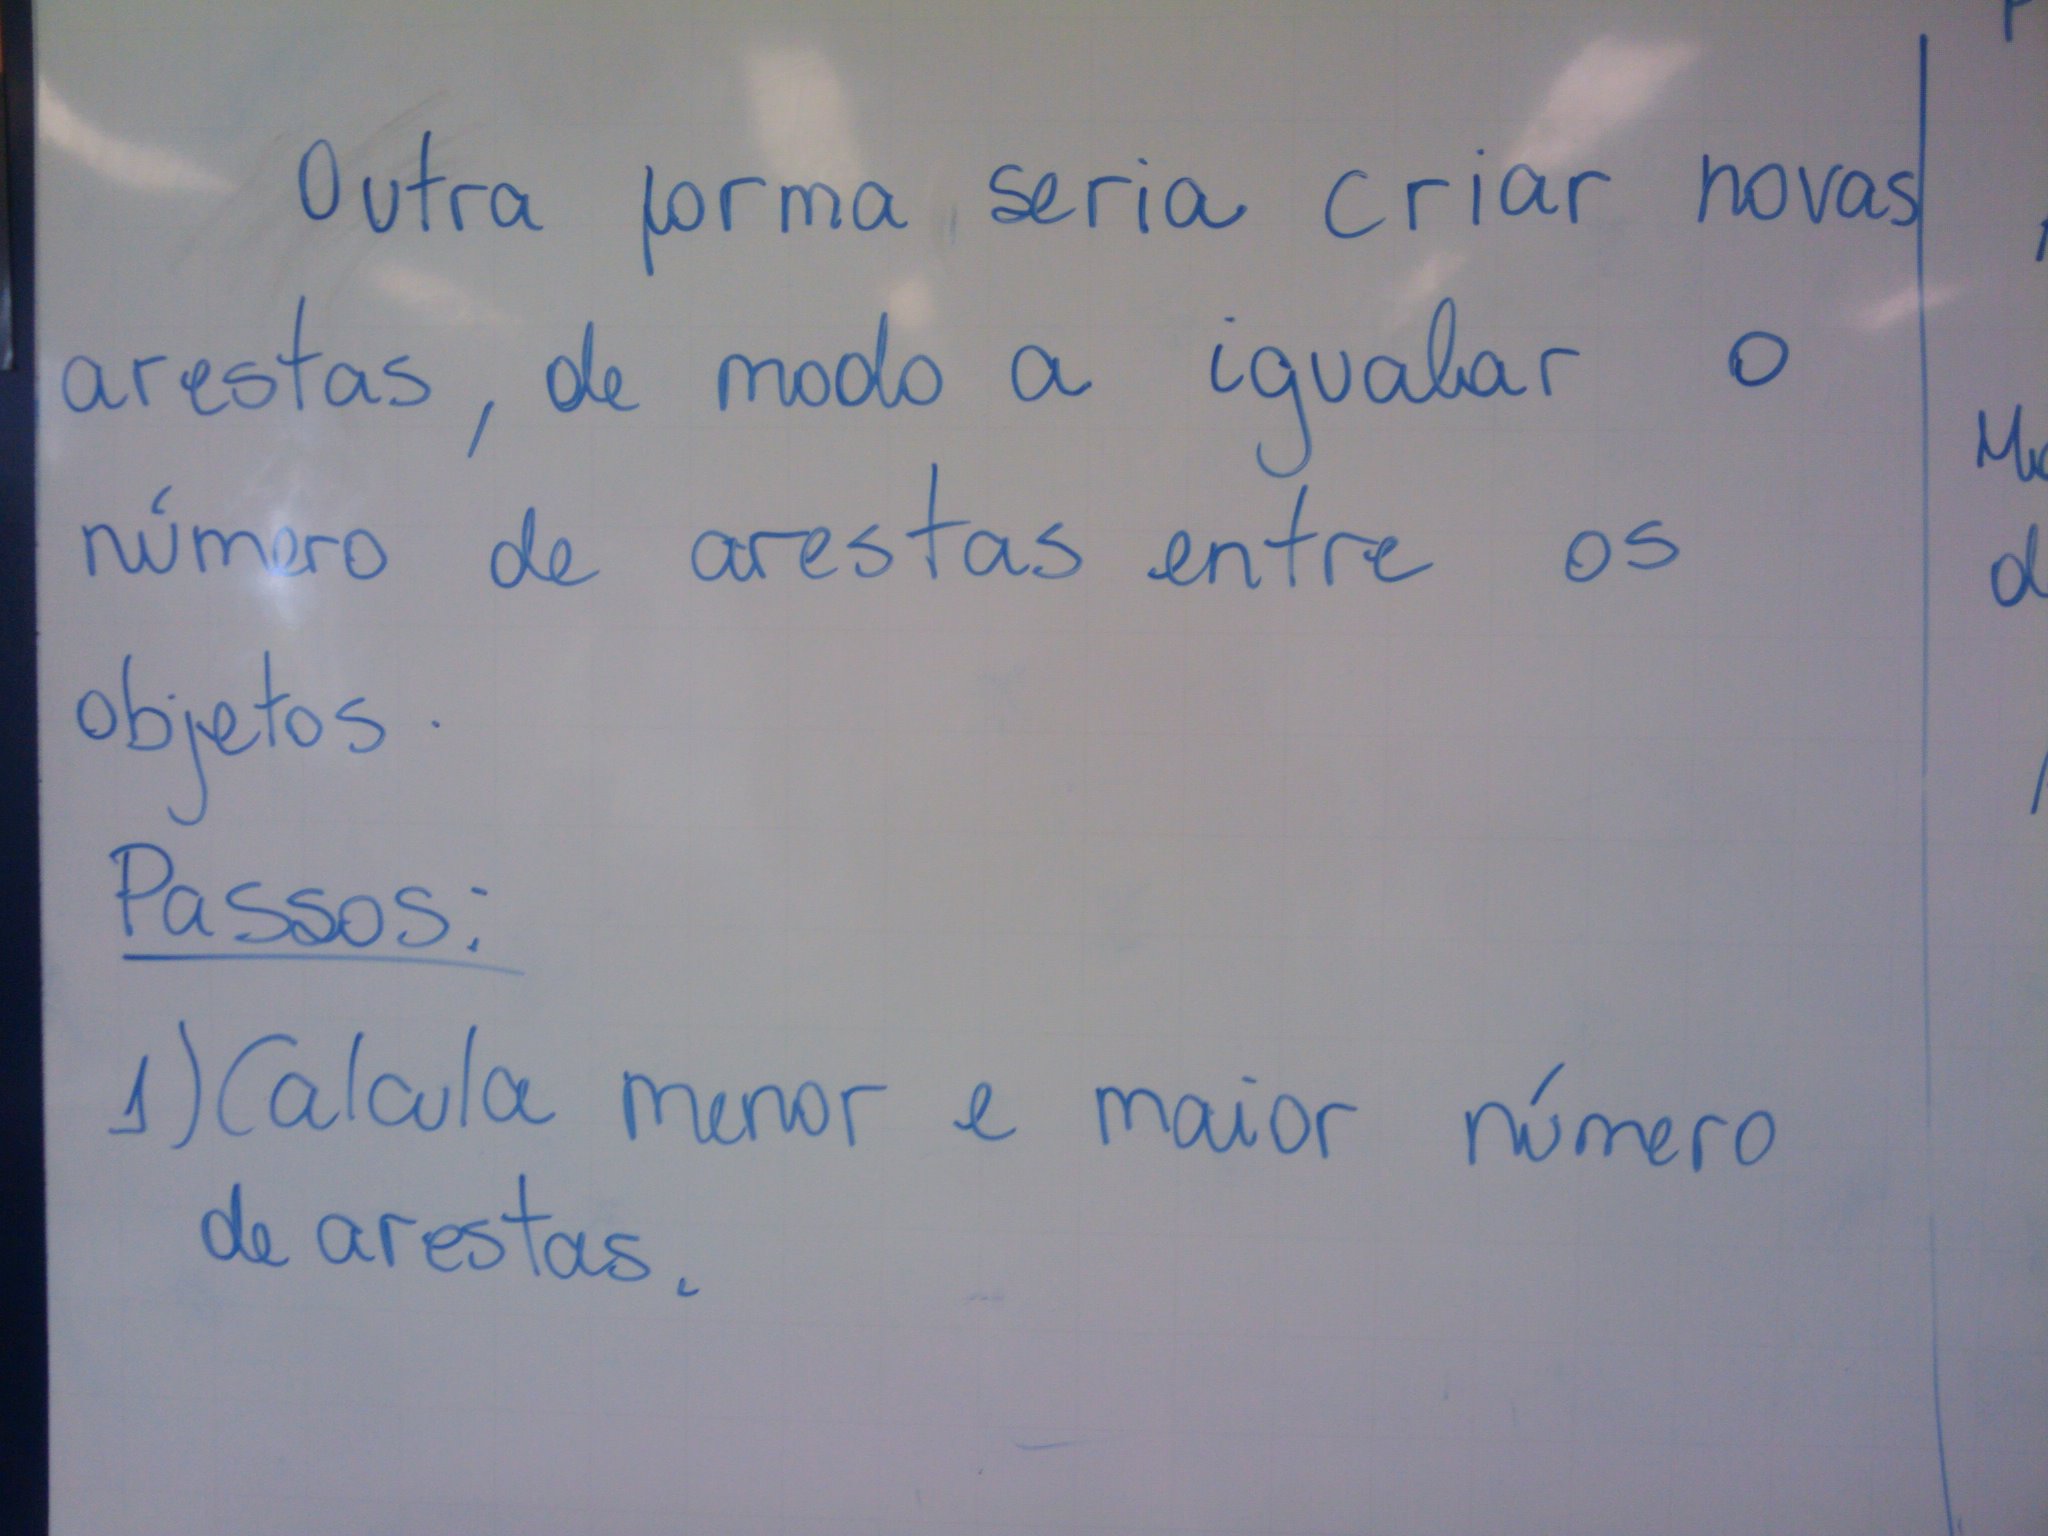 Outra forma seria criar novas
arestas, de modo a igualar o
número de arestas entre os
objetos.
Passos:
1) Calcula menor e maior número
de arestas.